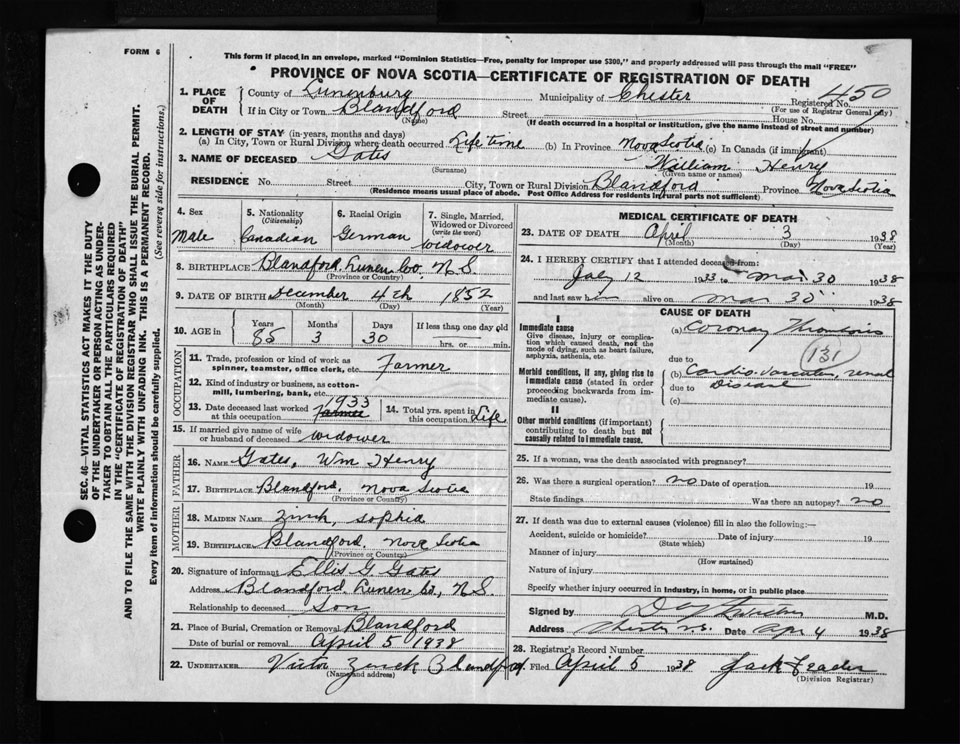 FORM 6
This form if placed in an envelope, marked "Dominion Statistics—Free, penalty for improper use $300," and properly addressed will pass through the mail "FREE"
PROVINCE OF NOVA SCOTIA—CERTIFICATE OF REGISTRATION OF DEATH
450
1. PLACE OF DEATH
County of Lunenburg Municipality of Chester Registered No.
(For use of Registrar General only)
If in City or Town Blandford Street House No.
(Name) (If death occurred in a hospital or institution, give the name instead of street and number)
2. LENGTH OF STAY (in years, months and days)
(a) In City, Town or Rural Division where death occurred Life time (b) In Province Nova Scotia (c) In Canada (if immigrant)
3. NAME OF DECEASED Gates William Henry
(Surname) (Given name or names)
RESIDENCE No. Street City, Town or Rural Division Blandford Province Nova Scotia
(Residence means usual place of abode. Post Office Address for residents in rural parts not sufficient)
4. Sex Male
5. Nationality (Citizenship) Canadian
6. Racial Origin German
7. Single, Married, Widowed or Divorced (write the word) Widower
8. BIRTHPLACE Blandford, Lunen. Co. N.S.
(Province or Country)
9. DATE OF BIRTH December 4th 1852
(Month) (Day) (Year)
10. AGE in Years Months Days If less than one day old
85 3 30 hrs. or min.
OCCUPATION
11. Trade, profession or kind of work as spinner, teamster, office clerk, etc. Farmer
12. Kind of industry or business, as cotton-mill, lumbering, bank, etc.
13. Date deceased last worked at this occupation 1933 Farmer
14. Total yrs. spent in this occupation Life
15. If married give name of wife or husband of deceased widower
FATHER
16. NAME Gates, Wm Henry
17. BIRTHPLACE Blandford, Nova Scotia
(Province or Country)
MOTHER
18. MAIDEN NAME Zink, Sophia
19. BIRTHPLACE Blandford, Nova Scotia
(Province or Country)
20. Signature of informant Ellis G. Gates
Address Blandford, Lunen Co, N.S.
Relationship to deceased Son
21. Place of Burial, Cremation or Removal Blandford
Date of burial or removal April 5 1938
22. UNDERTAKER Victor Zinck Blandford
(Name and address)
MEDICAL CERTIFICATE OF DEATH
23. DATE OF DEATH April 3 1938
(Month) (Day) (Year)
24. I HEREBY CERTIFY that I attended deceased from:
July 12 1933 to Mar. 30 1938
and last saw him alive on Mar 30 1938
CAUSE OF DEATH
I
Immediate cause
Give disease, injury or complication which caused death, not the mode of dying, such as heart failure, asphyxia, asthenia, etc.
Morbid conditions, if any, giving rise to immediate cause (stated in order proceeding backwards from immediate cause).
II
Other morbid conditions (if important) contributing to death but not causally related to immediate cause.
(a) Coronary Thrombosis
due to
131
(b) Cardio-vascular, renal
due to Disease
(c)
25. If a woman, was the death associated with pregnancy?
26. Was there a surgical operation? no Date of operation 19
State findings Was there an autopsy? no
27. If death was due to external causes (violence) fill in also the following:—
Accident, suicide or homicide? Date of injury 19
(State which)
Manner of injury
(How sustained)
Nature of injury
Specify whether injury occurred in Industry, in home, or in public place
Signed by M.D.
Address Chester N.S. Date Apr 4 1938
28. Registrar's Record Number
Filed April 5 1938 Jack
(Division Registrar)
SEC. 46—VITAL STATISTICS ACT MAKES IT THE DUTY
OF THE UNDERTAKER OR PERSON ACTING AS UNDERTAKER
TO OBTAIN ALL THE PARTICULARS REQUIRED
IN THE "CERTIFICATE OF REGISTRATION OF DEATH"
AND TO FILE THE SAME WITH THE DIVISION REGISTRAR WHO SHALL ISSUE THE BURIAL PERMIT.
WRITE PLAINLY WITH UNFADING INK. THIS IS A PERMANENT RECORD.
Every item of information should be carefully supplied. (See reverse side for instructions.)